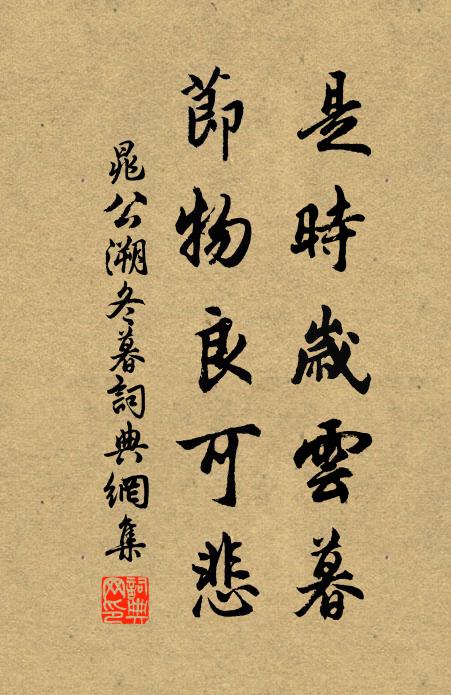 是時歲雲暮
節物良可悲
晁公溯冬暮詞典網集
詞典網印